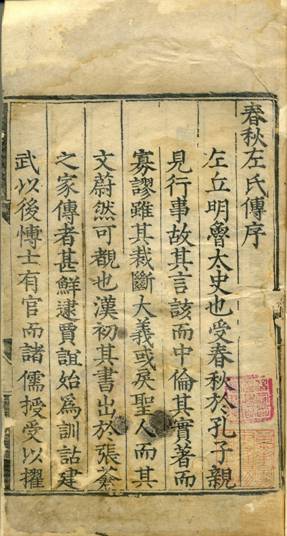 春秋左氏傳序
左丘明魯太史也受春秋於孔子親
見行事故其言該而中倫其實著而
寡謬雖其裁斷大義或戾聖人而其
文蔚然可觀也漢初其書出於張蒼
之家傳者甚鮮逮賈誼始為訓詁建
武以後博士有官而諸儒授受以擢